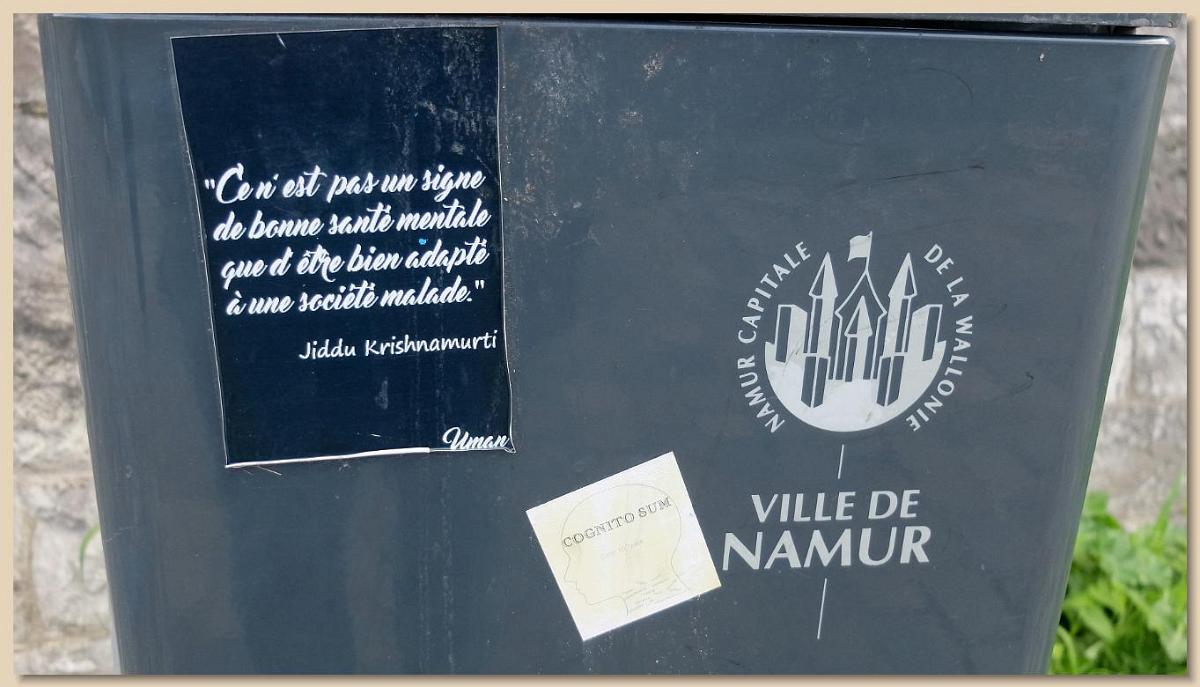 "Ce n'est pas un signe
de bonne santé mentale
que d'être bien adapté
à une société malade."
Jiddu Krishnamurti
Uman
COGNITO SUM
NAMUR CAPITALE DE LA WALLONIE
VILLE DE
NAMUR